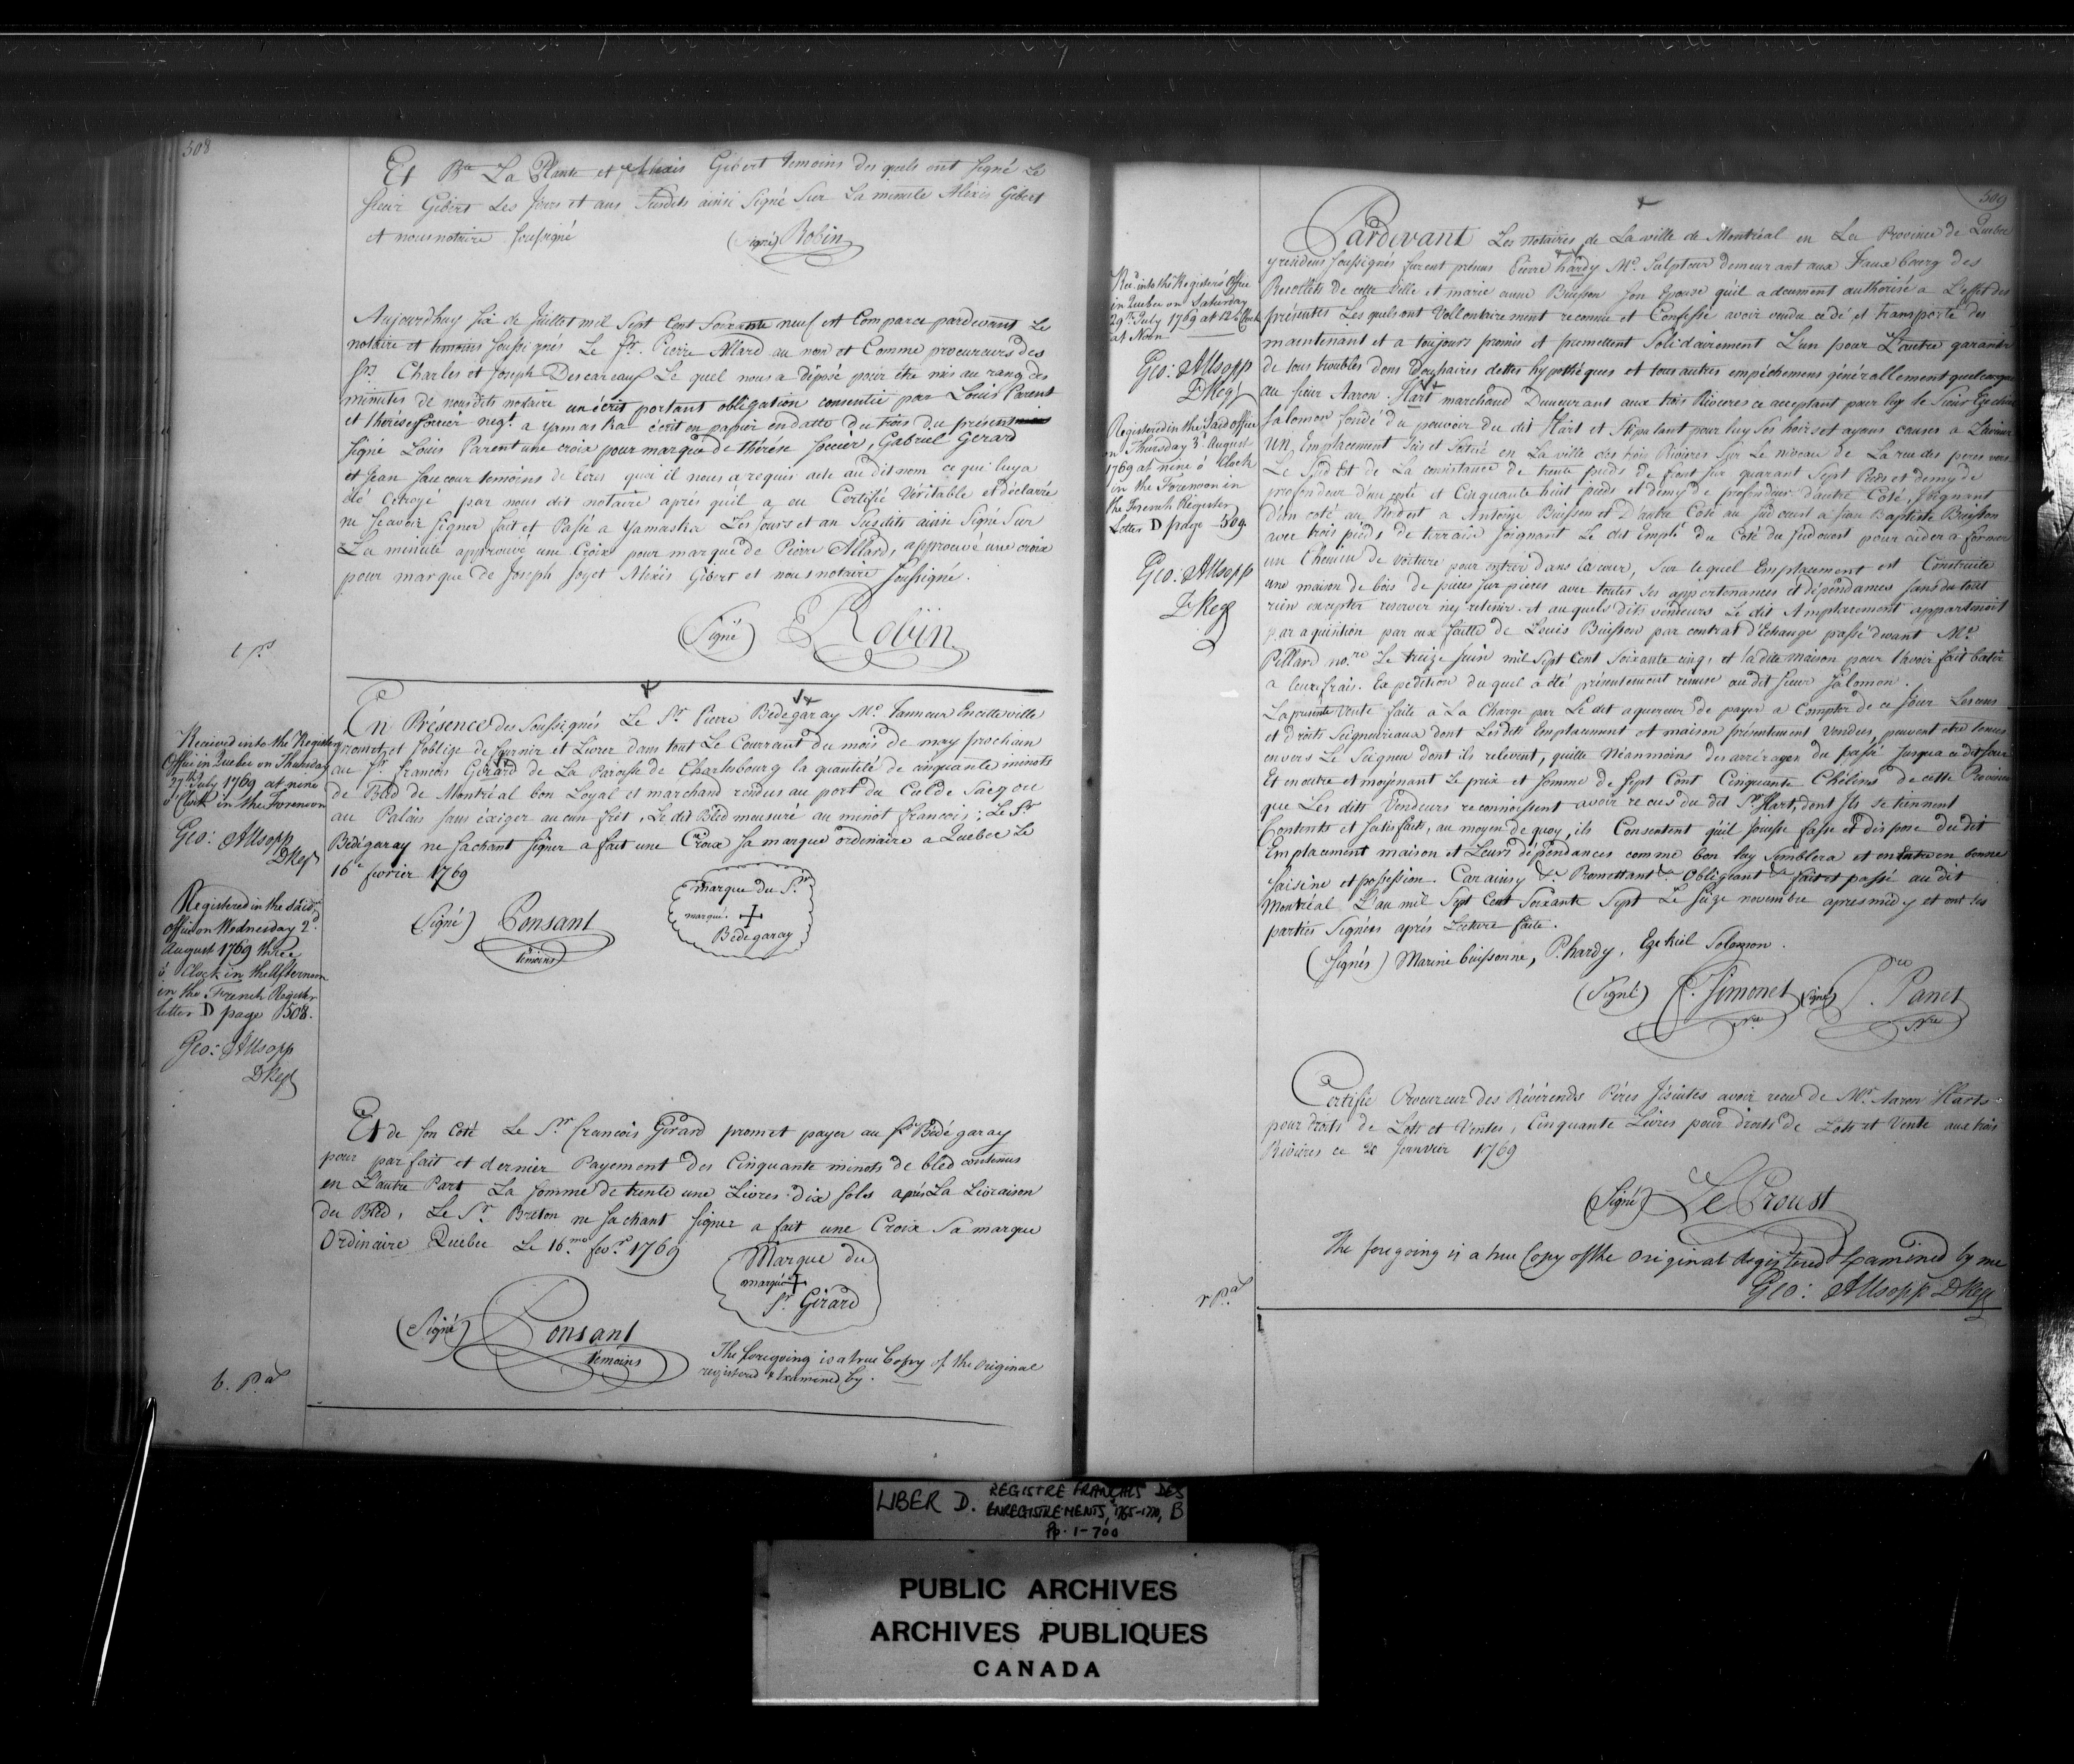 508
Et Bte La Plante et Alexis Gibert temoins des quels ont signé Le
sieur Gibert Les Jours et ans Susdits ainsi Signé Sur La minute Aléxis Gibert
et nous notaire soussigné
(Signé) Robin
Aujourdhuy six de Juillet mil Sept Cent Soixante neuf est Comparu pardevant Le
notaire et temoins soussignés Le Sr. Pierre Allard au nom et Comme procureurs des
Srs Charles et Joseph Descareaux Le quel nous a déposé pour être mis au rang des
minutes de nousdits notaire un écrit portant obligation consentie par Louis Parent
et thérése forcier negt. a yamaska écrit en papier en datte du trois du présent
Signé Louis Parent une croix pour marque de thérése forcier, Gabriel Gerard
et Jean Jaucour temoins de ceres quoi il nous a requis acte au dit nom ce qui luy a
été Octroyé par nous dit notaire aprés qu'il a eu Certifié Véritable et déclaré
ne Scavoir signer fait et Passé a Yamaska Les Jours et an Susdits ainsi Signé Sur
La minute approuvé une Croix pour marque de Pierre Allard, approuvé une croix
pour marque de Joseph Joyet Aléxis Gibert et nous notaire Soussigné.
(Signé) Robin
En Présence des Soussignés Le Sr Pierre Bédégaray Me. Tanneur En cette ville
promet et s'oblige de fournir et Livrer dans tout Le Courrant du mois de may prochain
au Sr françois Girard de La Paroisse de Charlesbourg la quantité de cinquante minots
de Bled de Montréal bon Loyal et marchand rendus au port du Cul de Sacq ou
au Palais sans éxiger aucun frêt, Le dit Bled mesuré au minot françois; Le Sr
Bédégaray ne sachant signer a fait une Croix sa marque ordinaire a Quebec Le
16e fevrier 1769
(Signé) Ponsant
témoins
marque du Sr
marque. +
Bédegaray
Et de son Coté Le Sr. francois Girard promet payer au Sr Bédégaray
pour parfait et dernier Payement des Cinquante minots de bled contenus
en L'autre Part La somme de trente une Livres dix sols aprés La Livraison
du Bled, Le Sr. Breton ne sachant signer a fait une Croix Sa marque
Ordinaire Quebec Le 16.me fevr. 1769
Marque du
marque +
Sr Girard
(Signé) Ponsant
témoins
The foregoing is a true Copy of the Original
registered & Examined by.
Received into the Register
Office in Quebec on Thursday
27th July 1769 at nine
o'Clock in the Forenoon
Geo: Allsopp
DReg
Registered in the said
office on Wednesday 2d.
August 1769 three
o'Clock in the Afternoon
in the French Register
letter D page 508.
Geo: Allsopp
DReg
509
Pardevant Les Notaires de La ville de Montréal en La Province de Quebec
y résidens soussignés furent présens Pierre hardy Me. Sulpteur demeurant aux Fauxbourg des
Recollets de cette ville et marie anne Buisson son Epouse qu'il a deument authorisé a L'effet des
présentes Les quels ont Vollontairement reconnu et Confessé avoir vendu cedé et transporté des
maintenant et a toujours promis et promettent Solidairement L'un pour L'autre garantir
de tous troubles dons Doüaires dettes hypothéques et tous autres empéchemens générallement quelconques
au sieur Aaron Hart marchand Demeurant aux trois Rivieres ce acceptant pour luy le Sieur Ezechiel
Salomon fondé du pouvoir du dit Hart et Stipulant pour luy ses hoirs et ayans causes a L'avenir
Un Emplacement Sis et Scitué en La ville des trois Rivières sur Le niveau de La rue des peres vers
Le Sud Est de La consistance de trente pieds de front sur quarant Sept Pieds et demy de
profondeur d'un costé et Cinquante huit pieds et demy de profondeur d'autre Coté, Joignant
D'un coté au Nordest a Antoine Buisson et D'autre Coté au Sud ouest a Jean Baptiste Buisson
avec trois pieds de terrain Joignant Le dit Emplt. du Coté du Sudouest pour aider a former
un Chemin de Voiture pour entrer dans la cour, Sur lequel Emplacement est Construite
une maison de bois de pieces sur pieces avec toutes ses appartenances et dépendances sans du tout
rien excepter reserver ney retenir et auquels dits vendeurs Le dit Amplacement appartenoit
par aquisition par eux faitte de Louis Buisson par contrat d'Echange passé devant Me.
Pillard nore Le treize Juin mil Sept Cent Soixante cinq, et la dite maison pour l'avoir fait batir
a leurs frais. Expedition duquel a été présentement remise au dit sieur Salomon.
La presente vente faite a La Charge par Le dit aquereur de payer a Compter de ce Jour Les cens
et droits Seigneuriaux dont Lesdits Emplacement et maison présentement Vendus, peuvent etre tenues
envers Le Seigneur dont ils relevent, quitte Néanmoins des arrérages du passé Jusqua ce dit Jour
Et en outre et moyénant Le prix et somme de Sept Cent Cinquante Chélins de cette Province
que Les dits Vendeurs reconnoissent avoir recues du dit Sr Hart, dont Ils se tiennent
Contents et satisfaits, au moyen de quoy, ils Consentent qu'il Jouisse fasse et dispose du dit
Emplacement maison et Leurs dépendances comme bon luy Semblera et en Entre en bonne
saisine et possession. Car ainsy &a Promettant &a Obligeant &a fait et passé au dit
Montréal L'an mil Sept Cent Soixante Sept Le Seize novembre apres midy et ont les
parties Signées aprés Lecture faite.
(Signés) Marine buissonne, P. hardy, Ezekiel Solomon.
(Signé) F. Simonet (Signé) P. Panet
Nre Nre
Certifie Procureur des Révérends Péres Jésuites avoir recu de Mr. Aaron Harts
pour droits de Lots et Ventes, Cinquante Livres pour droits de Lots et Vente aux trois
Rivieres ce 20 Janvier 1769
(Signé) Le Proust
The foregoing is a true Copy of the Original Registered & Examined by me
Geo: Allsopp DReg
Recd. into the Registers Office
in Quebec on Saturday
29th July 1769 at 12 o'Clock
at Noon
Geo: Allsopp
DReg
Registered in the said office
on Thursday 3d August
1769 at nine o'Clock
in the Forenoon in
the French Register
Letter D page 509
Geo: Allsopp
DReg
LIBER D. REGISTRE FRANÇAIS DES
ENREGISTREMENTS, 1765-1770, B
Pp. 1-700
PUBLIC ARCHIVES
ARCHIVES PUBLIQUES
CANADA